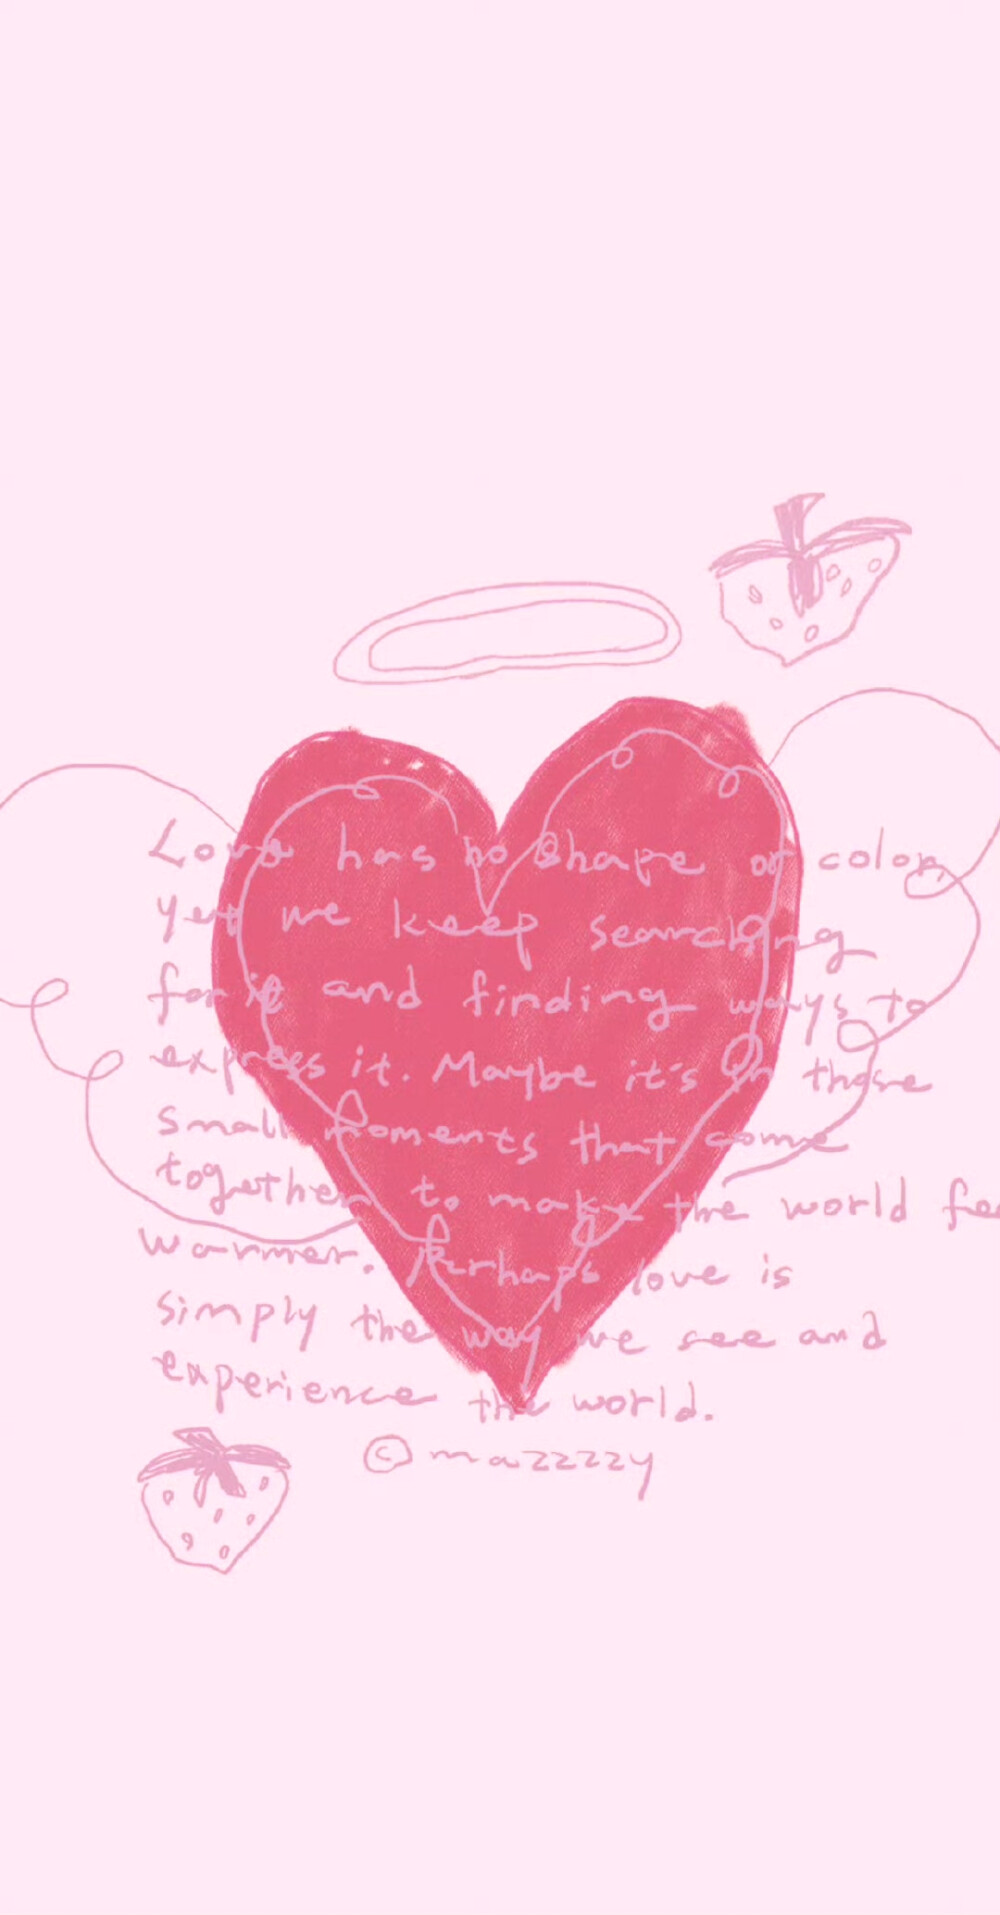 Love has no shape or color,
yet we keep searching
for it and finding ways to
express it. Maybe it's in those
small moments that come
together to make the world fee
warmer. Perhaps love is
simply the way we see and
experience the world.
©mazzzzy